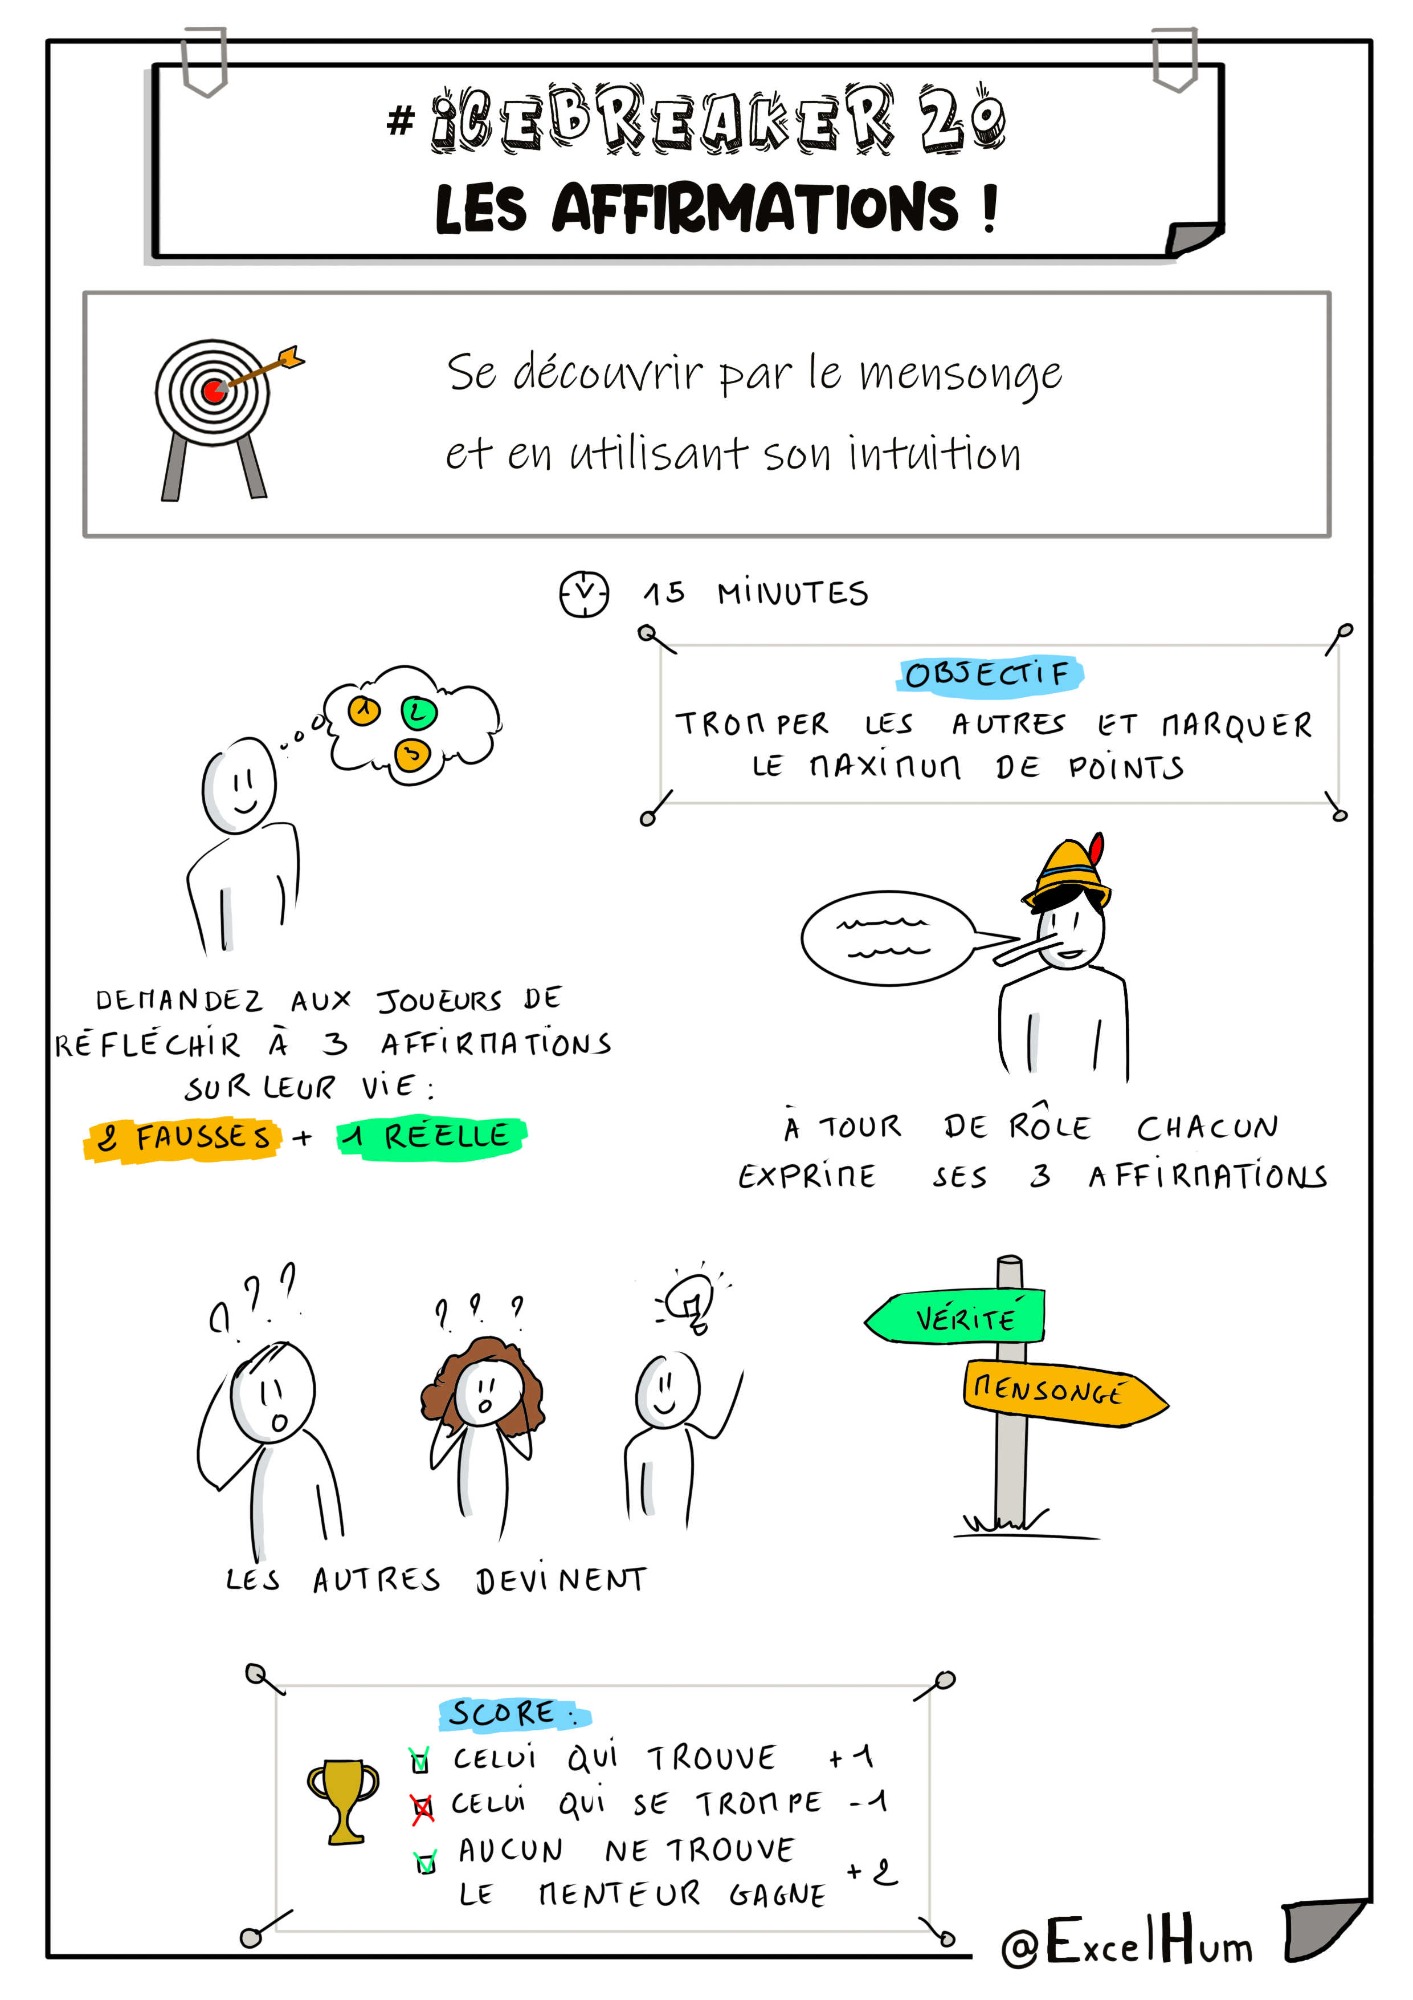 #iCEBREAKER 20
LES AFFIRMATIONS !
Se découvrir par le mensonge
et en utilisant son intuition
15 MiNUTES
OBJECTiF
TROMPER LES AUTRES ET MARQUER
LE MAXiMUM DE POiNTS
1 2
3
DEMANDEZ AUX JOUEURS DE
RÉFLÉCHiR À 3 AFFiRMATiONS
SUR LEUR ViE :
2 FAUSSES + 1 RÉELLE
À TOUR DE RÔLE CHACUN
EXPRiME SES 3 AFFiRMATiONS
? ? ?
? ? ?
VÉRiTÉ
MENSONGE
LES AUTRES DEViNENT
SCORE :
CELUi QUi TROUVE +1
CELUi QUi SE TROMPE -1
AUCUN NE TROUVE
LE MENTEUR GAGNE +2
@ExcelHum